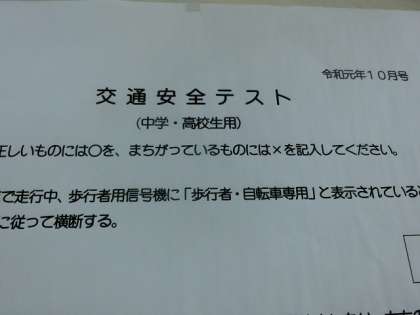 令和元年10月号
交通安全テスト
(中学・高校生用)
正しいものには〇を、まちがっているものには×を記入してください。
で走行中、歩行者用信号機に「歩行者・自転車専用」と表示されている
に従って横断する。